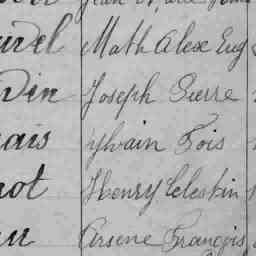 Math Alex Eug
Joseph Pierre
ais Sylvain Fois
not Henry Celestin
Arsene François